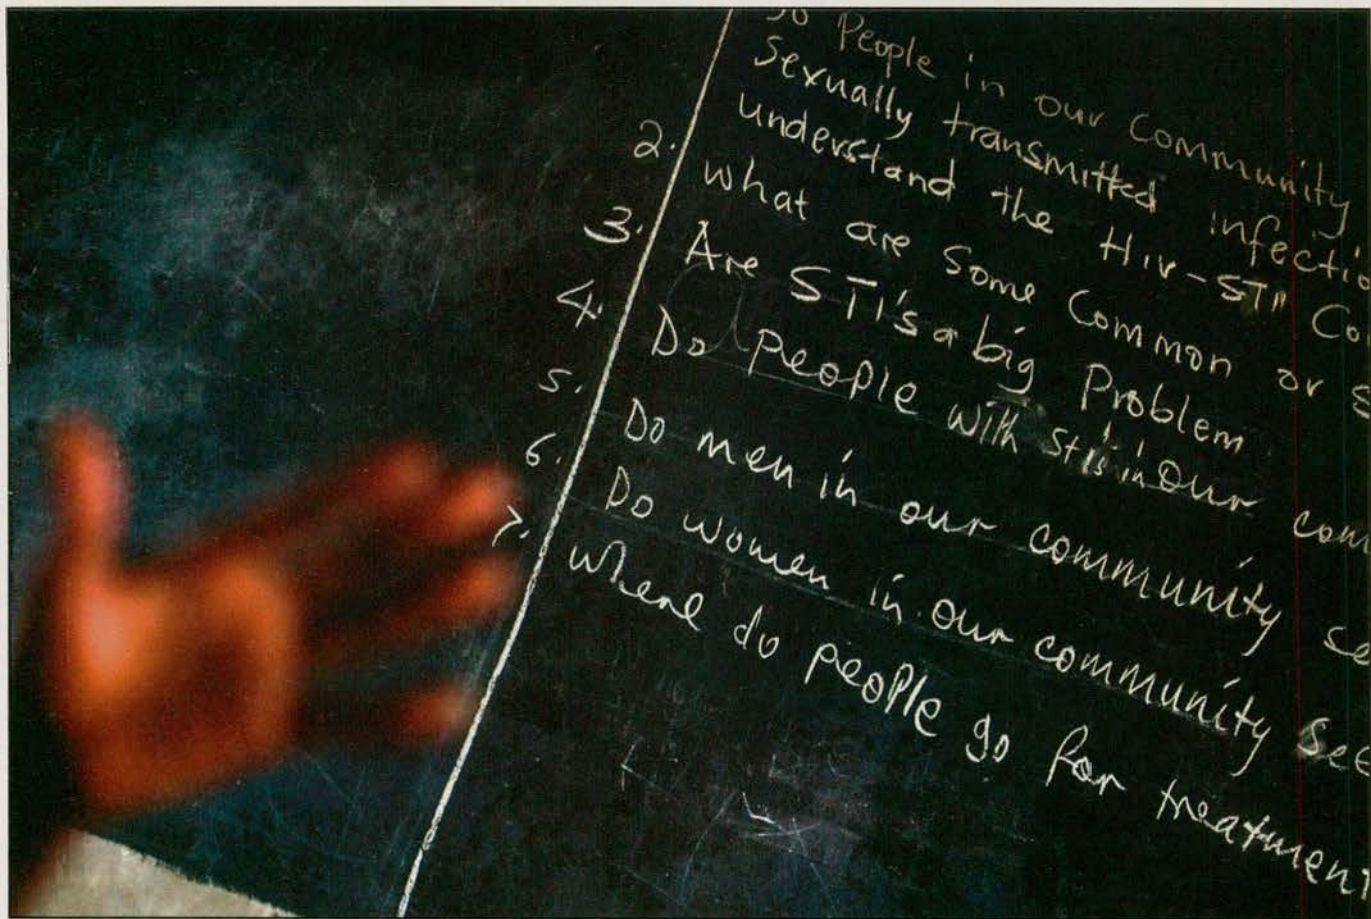 People in our Community
Sexually transmitted infectio
understand the HIV-STI Co
2. what are some Common or s
3. Are STI's a big Problem
4. Do People with sti's in Our com
5. Do men in our community se
6. Do women in our community see
7. where do people go for treatment